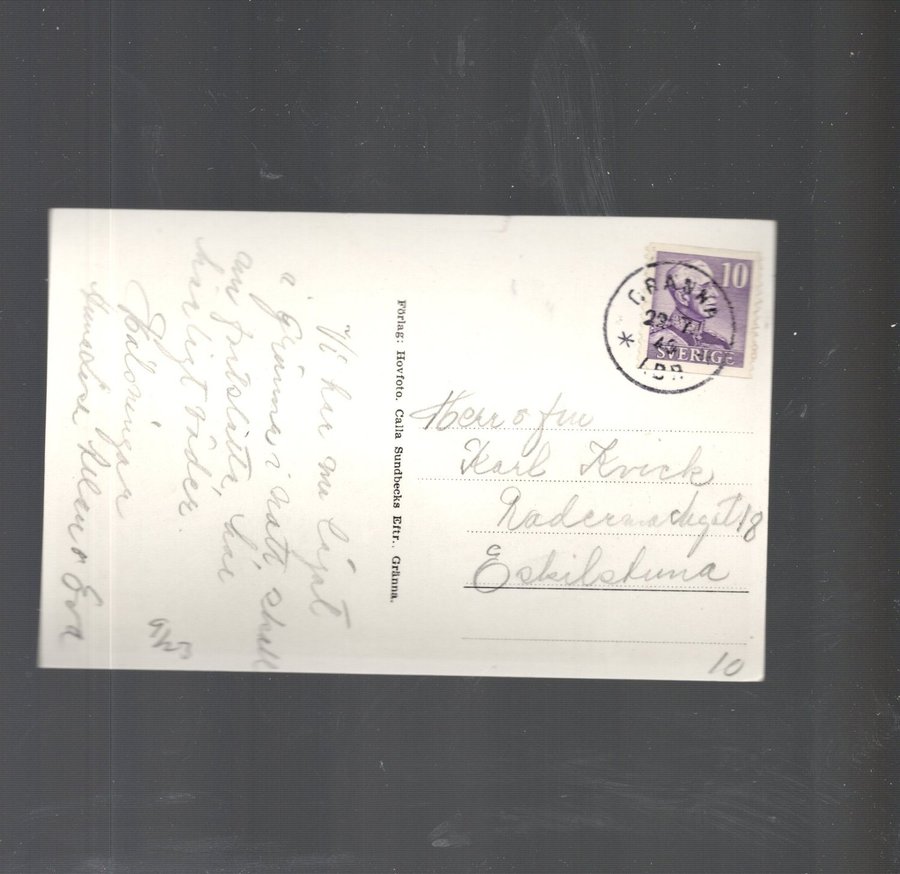 Vi har nu legat
i Gränna i natt skall
nu fortsätta, har
härligt väder.
Hälsningar
Helen o Eva
Förlag: Hovfoto. Calla Sundbecks Eftr., Gränna.
10
SVERIGE
GRÄNNA
Herr o fru
Karl Kvick
Rademachegat 18
Eskilstuna
10